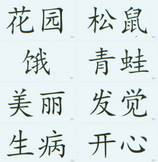 花园 松鼠
饿 青蛙
美丽 发觉
生病 开心